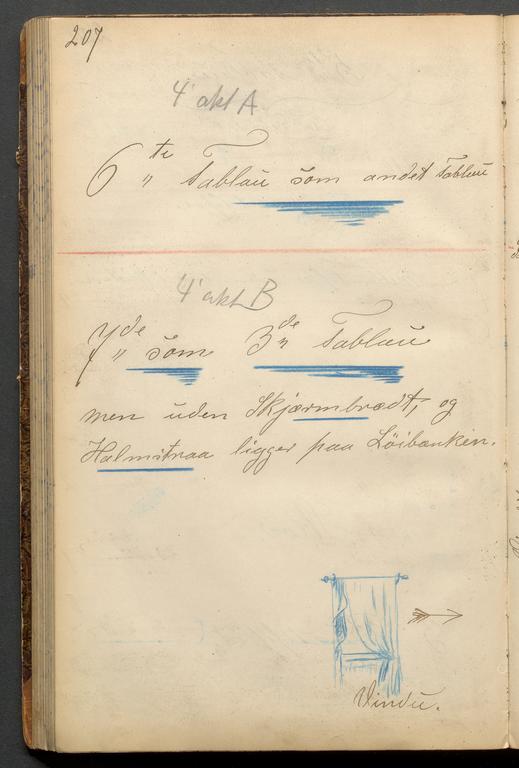 207
4' akt A
6te Tablau som andet Tablau
4' akt B
7de som 3de Tablau
men uden Skjærmbrædt, og
Halmstraa ligger paa Löibænken.
Vindu.